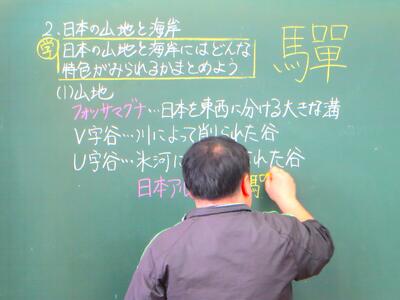 2.日本の山地と海岸
驒
学 日本の山地と海岸にはどんな
特色がみられるかまとめよう
(1)山地
フォッサマグナ…日本を東西に分ける大きな溝
V字谷…川によって削られた谷
U字谷…氷河に れた谷
日本アル